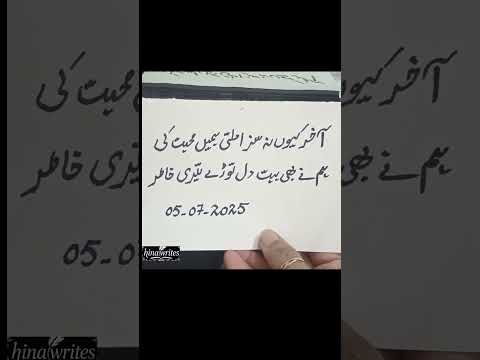 آخر کیوں نہ سزا ملتی ہمیں محبت کی
ہم نے بھی بہت دل توڑے تیری خاطر
05-07-2025
hinawrites